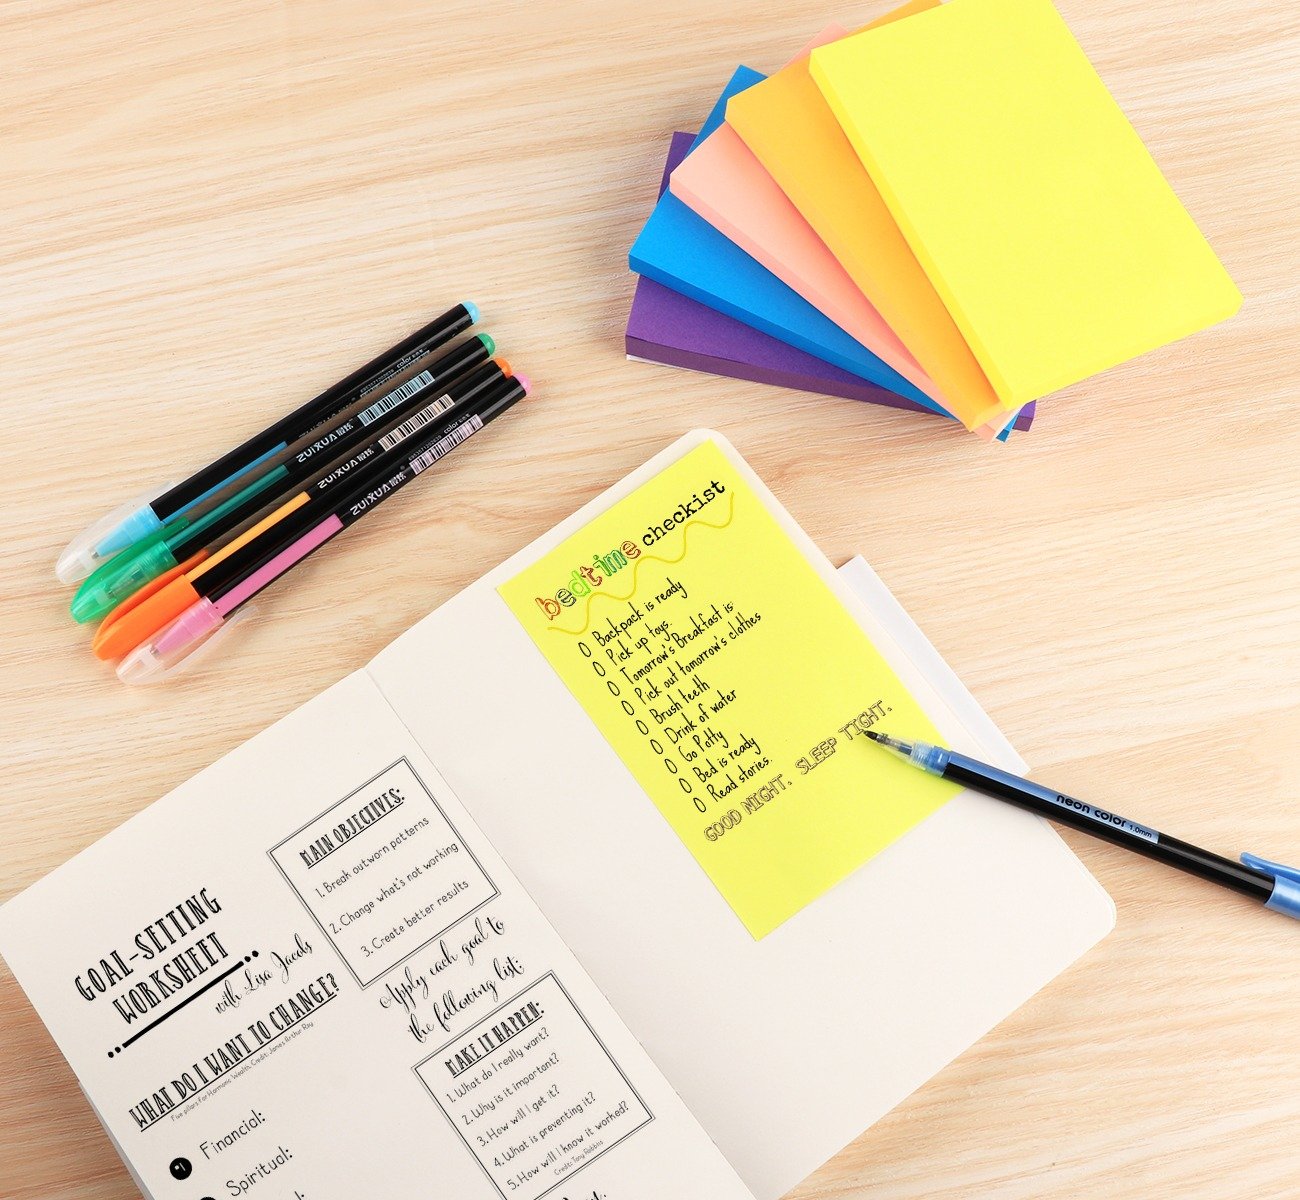 ZUIXUA
ZUIXUA
ZUIXUA
bedtime checkist
Backpack is ready
Pick up toys.
Tomorrow's Breakfast is:
Pick out tomorrow's clothes
Brush teeth
Drink of water
Go Potty
Bed is ready
Read stories.
GOOD NIGHT. SLEEP TIGHT.
neon color 1.0mm
GOAL-SETTING
WORKSHEET
with Lisa Jacobs
WHAT DO I WANT TO CHANGE?
Five pillars for Harmonic Wealth, Credit: James Arthur Ray
#1 Financial:
Spiritual:
MAIN OBJECTIVES:
1. Break outworn patterns
2. Change what's not working
3. Create better results
Apply each goal to
the following list:
MAKE IT HAPPEN:
1. What do I really want?
2. Why is it important?
3. How will I get it?
4. What is preventing it?
5. How will I know it worked?
Credit: Tony Robbins